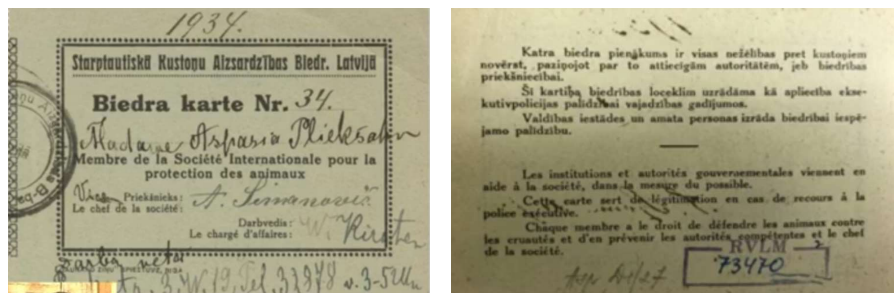 1934.
Starptautiskā Kustoņu Aizsardzības Biedr. Latvijā
Biedra karte Nr. 34.
Madame Aspasia Plieksohn
Membre de la Société Internationale pour la
protection des animaux
Vice Priekšnieks:
Le chef de la société: A. Simanovič
Darbvedis:
Le chargé d'affaires: W. Kirsten
Darba vieta
Tel. 33878 v. 3-5
Katra biedra pienākums ir visas nežēlības pret kustoņiem
novērst, paziņojot par to attiecīgām autoritātēm, jeb biedrības
priekšniecībai.
Šī kartiņa biedrības loceklim uzrādāma kā apliecība ekse-
kutivpolicijas palīdzībai vajadzības gadījumos.
Valdības iestādes un amata personas izrāda biedrībai iespē-
jamo palīdzību.
Les institutions et autorités gouvernementales viennent en
aide à la société, dans la mesure du possible.
Cette carte sert de légitimation en cas de recours à la
police exécutive.
Chaque membre a le droit de défendre les animaux contre
les cruautés et d'en prévenir les autorités compétentes et le chef
de la société.
RVLM
73470